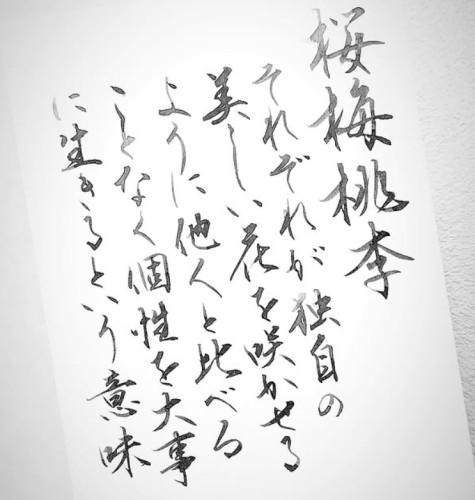 桜梅桃李
それぞれが独自の
美しい花を咲かせる
ように他人と比べる
ことなく個性を大事
に生きるという意味